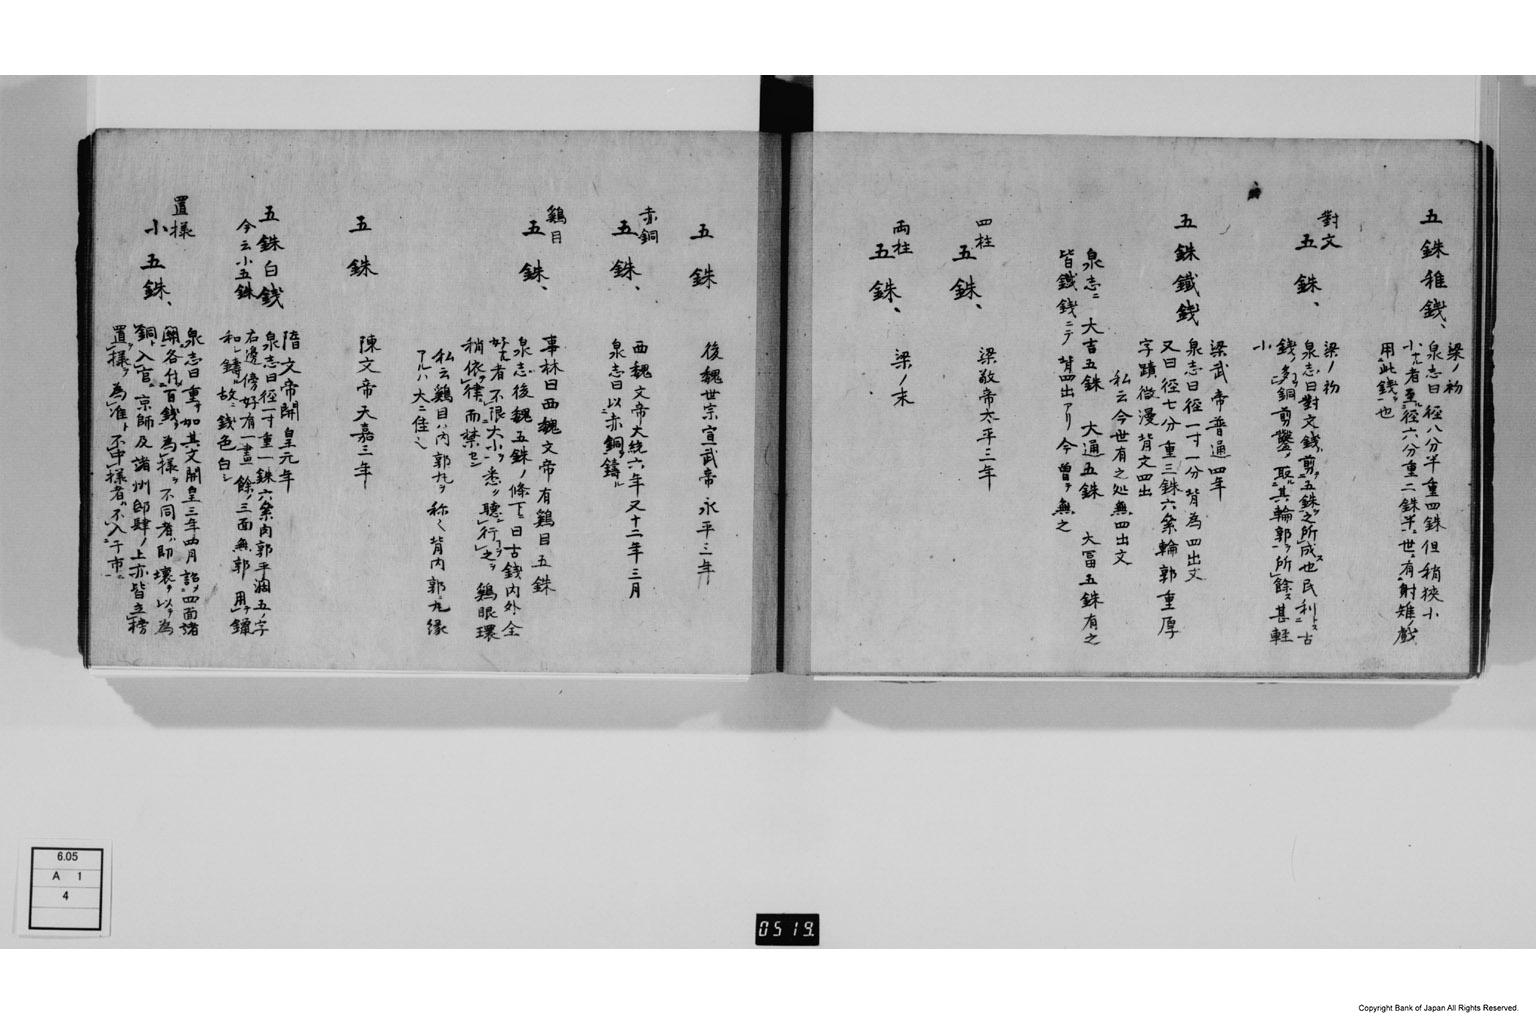 五銖稚銭、
梁ノ初
泉志曰 径八分半重四銖但稍狭小
小ナル者重径六分重二銖半世ニ有射雉ノ戯
用此銭ヲ也
對文
五銖、
梁ノ初
泉志曰對文銭ハ剪五銖之所成也民利トス古
銭ノ多銅剪鑿ノ取其輪郭所餘ス甚軽
小
五銖鐵銭
梁武帝普通四年
泉志曰径一寸一分背為四出文
又曰径七分重三銖六絫輪郭重厚
字蹟微漫背文四出
私云今世有之処無四出文
泉志ニ 大吉五銖 大通五銖 大冨五銖有之
皆鐵銭ニテ背四出アリ今曽テ無之
四柱
五銖、
梁敬帝太平二年
両柱
五銖、
梁ノ末
五銖
後魏世宗宣武帝永平三年
赤銅
五銖、
西魏文帝大統六年又十二年三月
泉志曰以赤銅ヲ鑄ル
鶏目
五銖、
事林曰西魏文帝有鶏目五銖
泉志後魏五銖ノ條下ニ曰古銭内外全
好者不限大小ヲ悉ク聴行之ヲ鶏眼環
稍依律ニ而禁セン
私云鶏目ハ内郭丸ヲ称ス背内郭ニ丸縁
アルハ大ニ佳シ
五銖
陳文帝天嘉三年
五銖白銭
今云小五銖
隋文帝開皇元年
泉志曰径一寸重一銖六絫肉郭平濶五ノ字
右邊傍好有一畫餘ノ三面無郭用鑞
和鑄ル故ニ銭色白シ
置様
小五銖、
泉志曰重サ如其文開皇三年四月詔メ四面諸
關各付百銭ヲ為様ト不同者ハ即壊ヲ以テ為
銅ト入官ニ京師及諸州邸肆ノ上亦皆立榜
置様ヲ為准ト不中様者ハ不入于市ニ
6.05
A 1
4
0519
Copyright Bank of Japan All Rights Reserved.